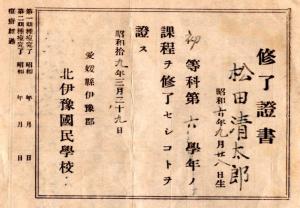 修了證書
松田清太郎
昭和十年九月廿八日生
初等科第六學年ノ
課程ヲ修了セシコトヲ
證ス
昭和拾九年三月二十九日
愛媛縣伊豫郡
北伊豫國民學校
第一期種痘完了 昭和 年 月 日
第二期種痘完了 昭和 年 月 日